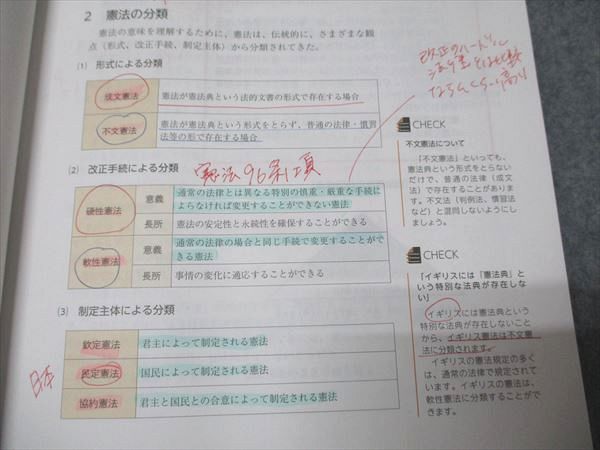 2 憲法の分類
憲法の意味を理解するために、憲法は、伝統的に、さまざまな観
点（形式、改正手続、制定主体）から分類されてきた。
(1) 形式による分類
成文憲法 憲法が憲法典という法的文書の形式で存在する場合
不文憲法 憲法が憲法典という形式をとらず、普通の法律・慣習
法等の形で存在する場合
(2) 改正手続による分類
憲法96条1項
硬性憲法 意義 通常の法律とは異なる特別の慎重・厳重な手続に
よらなければ変更することができない憲法
長所 憲法の安定性と永続性を確保することができる
軟性憲法 意義 通常の法律の場合と同じ手続で変更することがで
きる憲法
長所 事情の変化に適応することができる
(3) 制定主体による分類
欽定憲法 君主によって制定される憲法
日本
民定憲法 国民によって制定される憲法
協約憲法 君主と国民との合意によって制定される憲法
改正のハードル
法律とは比較
ならんくらい高い
CHECK
不文憲法について
「不文憲法」といっても、
憲法典という形式をとらない
だけで、普通の法律（成文
法）で存在することがありま
す。不文法（判例法、慣習法
など）と混同しないようにし
ましょう。
CHECK
「イギリスには「憲法典」と
いう特別な法典が存在しな
い」
イギリスには憲法典という
特別な法典が存在しないこと
から、イギリス憲法は不文憲
法に分類されます。
イギリスの憲法規定の多く
は、通常の法律で規定されて
います。イギリスの憲法は、
軟性憲法に分類することがで
きます。